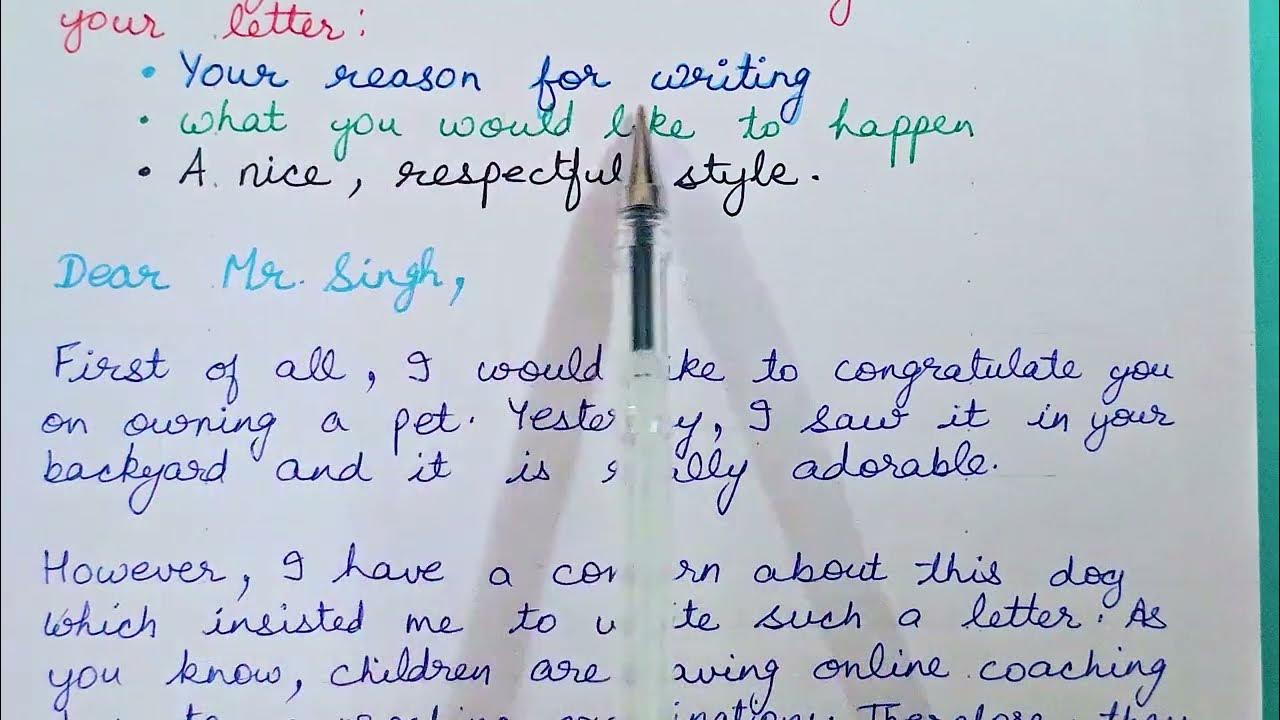 your letter:
• Your reason for writing
• what you would like to happen
• A nice, respectful style.
Dear Mr. Singh,
First of all, I would like to congratulate you
on owning a pet. Yesterday, I saw it in your
backyard and it is really adorable.
However, I have a concern about this dog
which insisted me to write such a letter. As
you know, children are having online coaching
Therefore, they